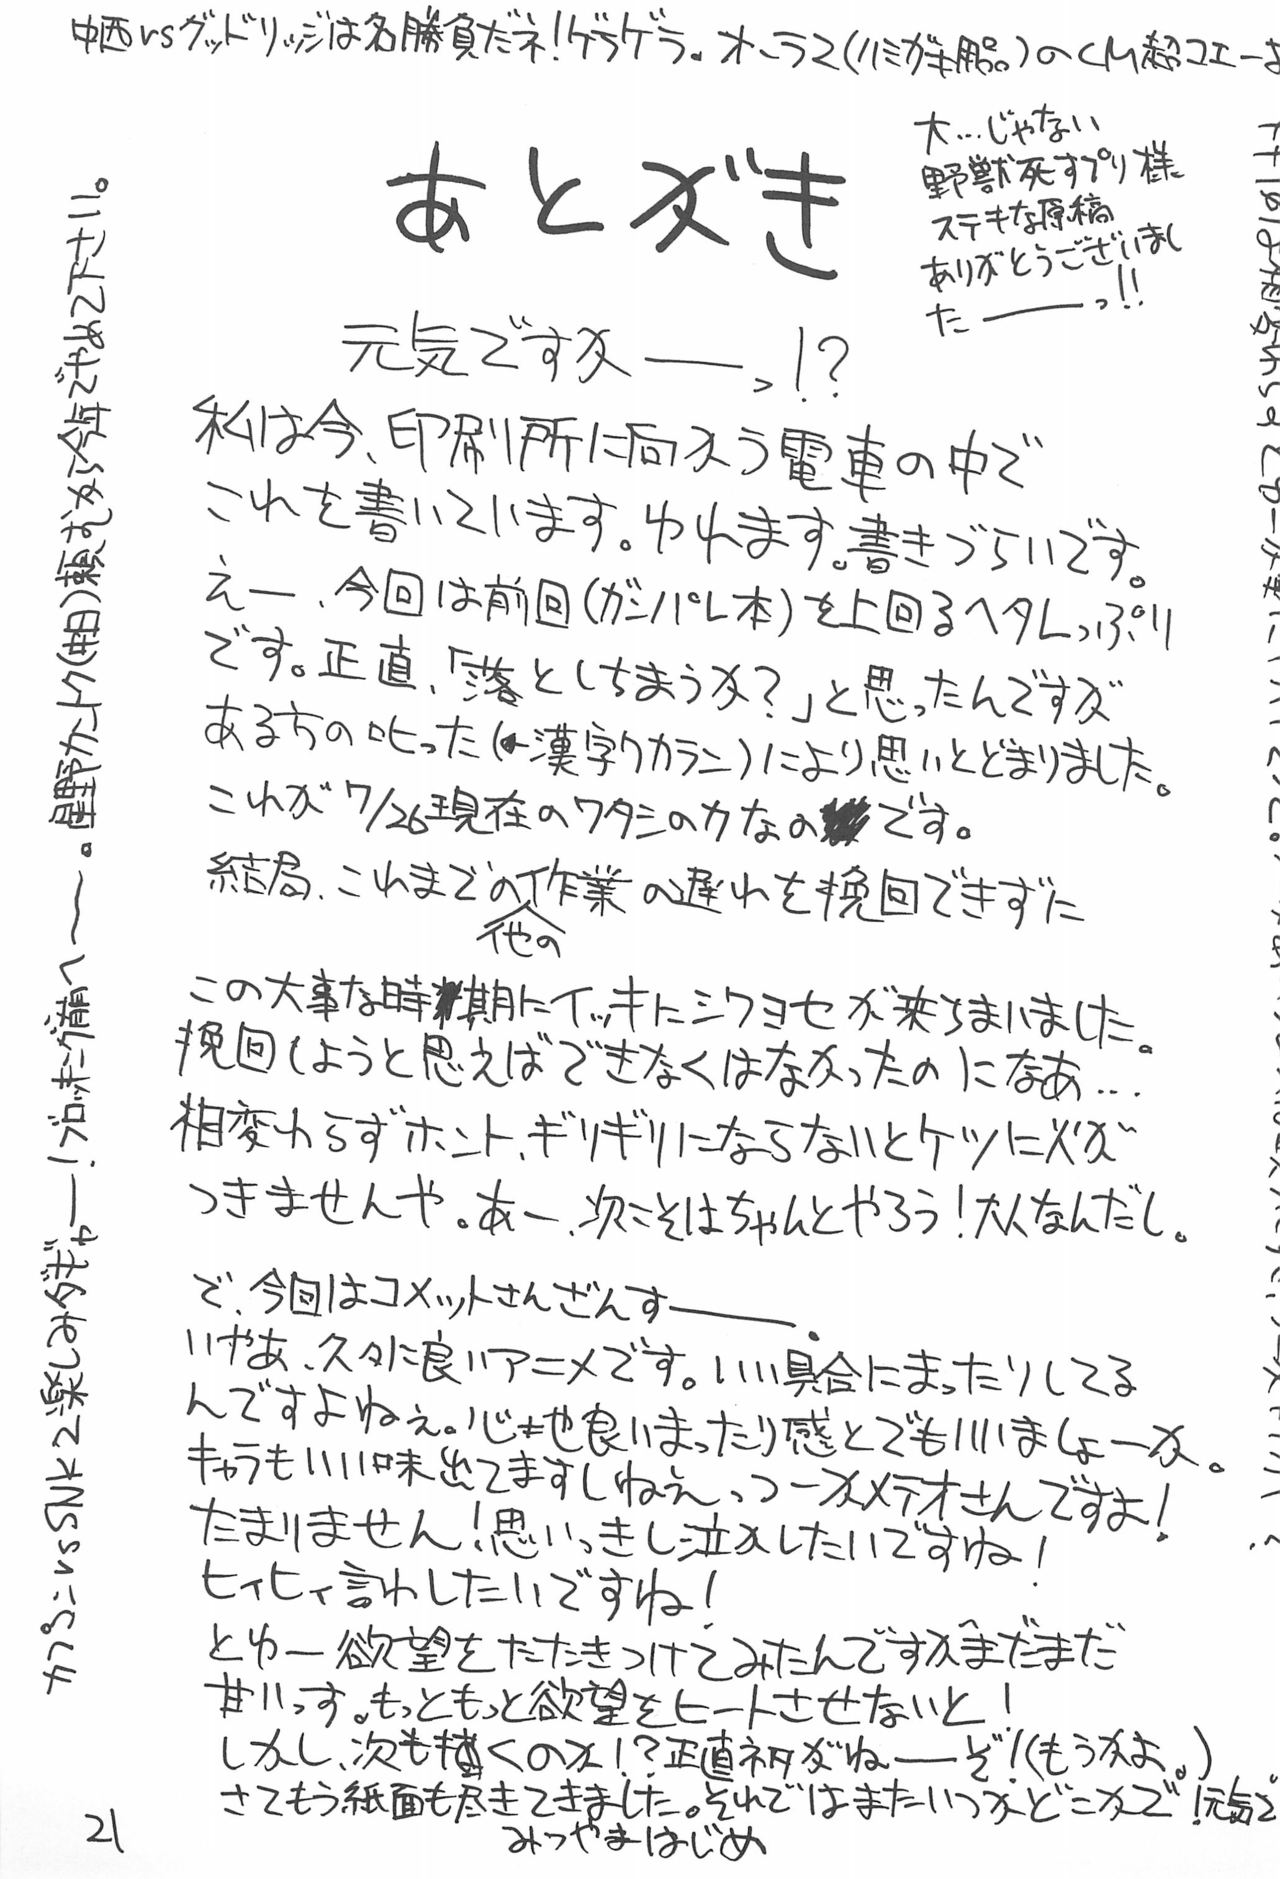 中西vsグッドリッジは名勝負だネ!ゲラゲラ。オーラ2(ハミガキ粉。)のCM超コエーよ
あとがき
大…じゃない
野獣死すプリ様
ステキな原稿
ありがとうございまし
た——っ!!
元気ですか——っ!?
私は今、印刷所に向かう電車の中で
これを書いています。ゆれます。書きづらいです。
えー、今回は前回(ガンパレ本)を上回るヘタレっぷり
です。正直、「落としちまうか?」と思ったんですが
ある方の叱った(←漢字ワカラン)により思いとどまりました。
これが7/26現在のワタシの力なのです。
結局、これまでの他の作業の遅れを挽回できずに
この大事な時期にイッキにシワヨセが来ちまいました。
挽回しようと思えばできなくはなかったのになあ…
相変わらずホント、ギリギリにならないとケツに火が
つきませんや。あー、次こそはちゃんとやろう!大人なんだし。
で、今回はコメットさんざんす——。
いやあ、久々に良いアニメです。いい具合にまったりしてる
んですよねぇ。心地良いまったり感とでもいいましょーか。
キャラもいい味出てますしねえ、つーかメテオさんですよ!
たまりません!思いっきし泣かしたいですね!
ヒィヒィ言わしたいですね!
とゆー欲望をたたきつけてみたんですがまだまだ
甘いっす。もっともっと欲望をヒートさせないと!
しかし、次も描くのか!?正直ネタがねーぞ!(もうかよ。)
さてもう紙面も尽きてきました。それではまたいつかどこかで!元気で
みつやまはじめ
カプコンvsSNK2楽しみダギャー!ブロッキング萌へ〜〜。星野カントク(旦)頼むから今年でやめて下さい。
21